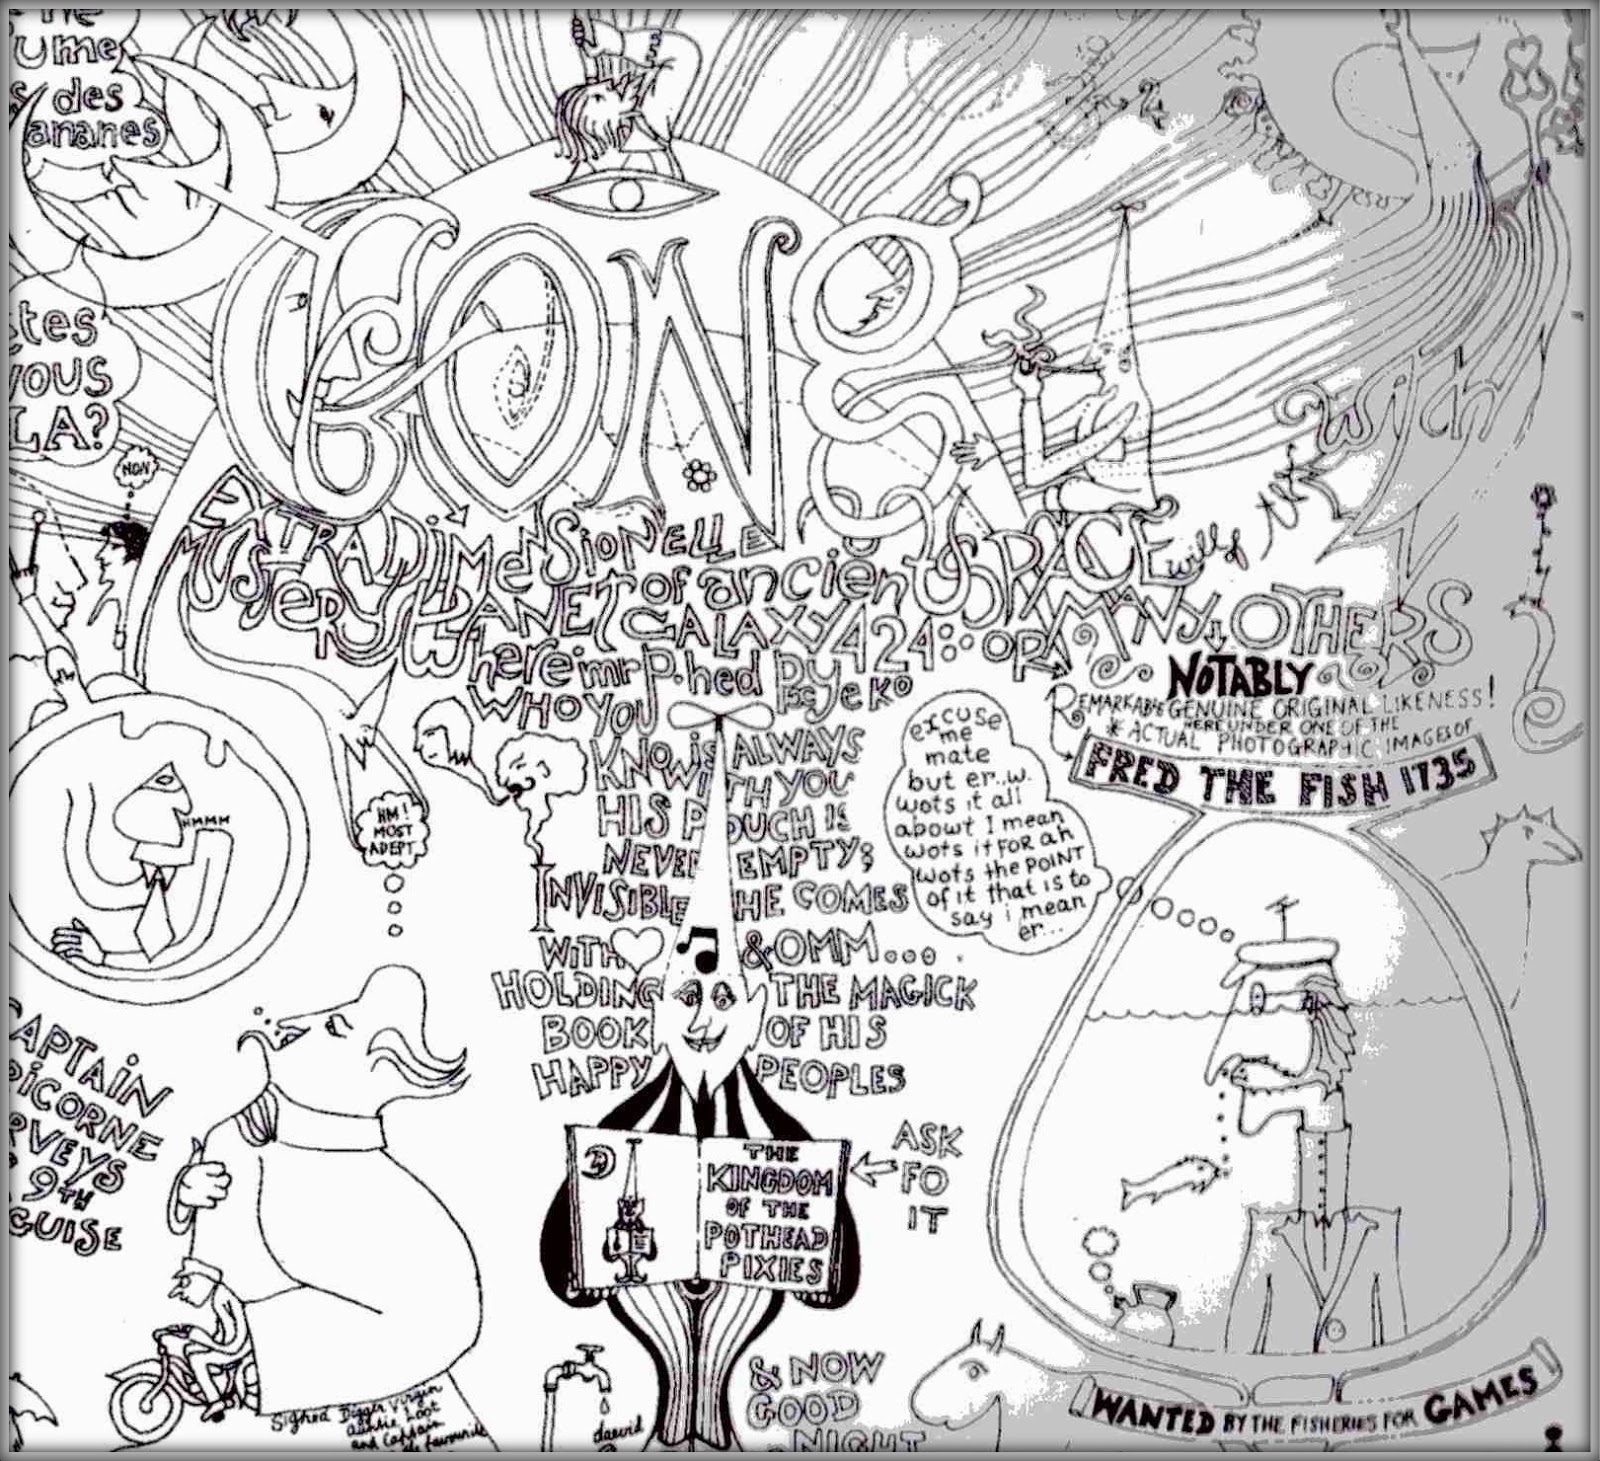 ume
des
ananes
tes
vous
LA?
NON
GONg
with
EXTRADiMeNSioNELLE
MUSTERY PLANET of ancient SPACE
GALAXY 424: OR MANY OTHERS
Where mr P.hed
WHO YOU
KNOW is ALWAYS
WITH YOU
HIS POUCH IS
NEVER EMPTY;
INVISIBLE HE COMES
WITH & OMM...
HOLDING THE MAGICK
BOOK OF HIS
HAPPY PEOPLES
NOTABLY
REMARKABLE GENUINE ORIGINAL LIKENESS!
HEREUNDER ONE OF THE
* ACTUAL PHOTOGRAPHIC IMAGES OF
FRED THE FISH 1735
excuse
me
mate
but er..w.
wots it all
abowt I mean
wots it FOR ah
wots the POINT
of it that is to
say i mean
er...
HMMMM
HM!
MOST
ADEPT
APTAIN
PICORNE
RVEYS
9TH
GUISE
THE
KINGDOM
OF THE
POTHEAD
PIXIES
ASK
FO
IT
Signed Digger Virgin
auntie Loot
and Captain
favourite
daevid
& NOW
GOOD
NIGHT
WANTED BY THE FISHERIES FOR GAMES